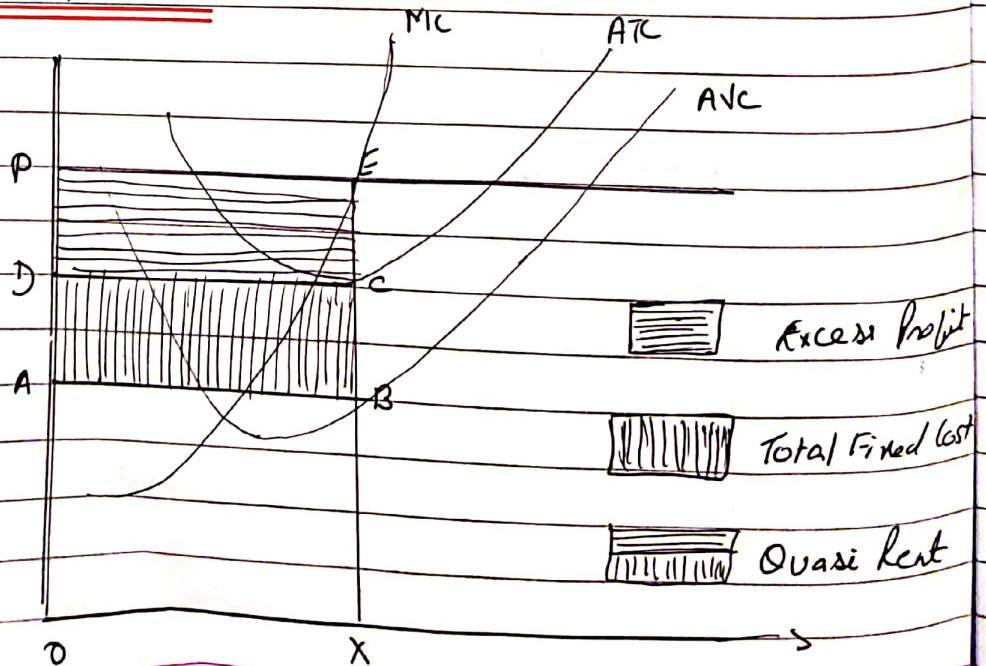 MC
ATC
AVC
P
E
D
C
A
B
Excess Profit
Total Fixed Cost
Quasi Rent
O
X